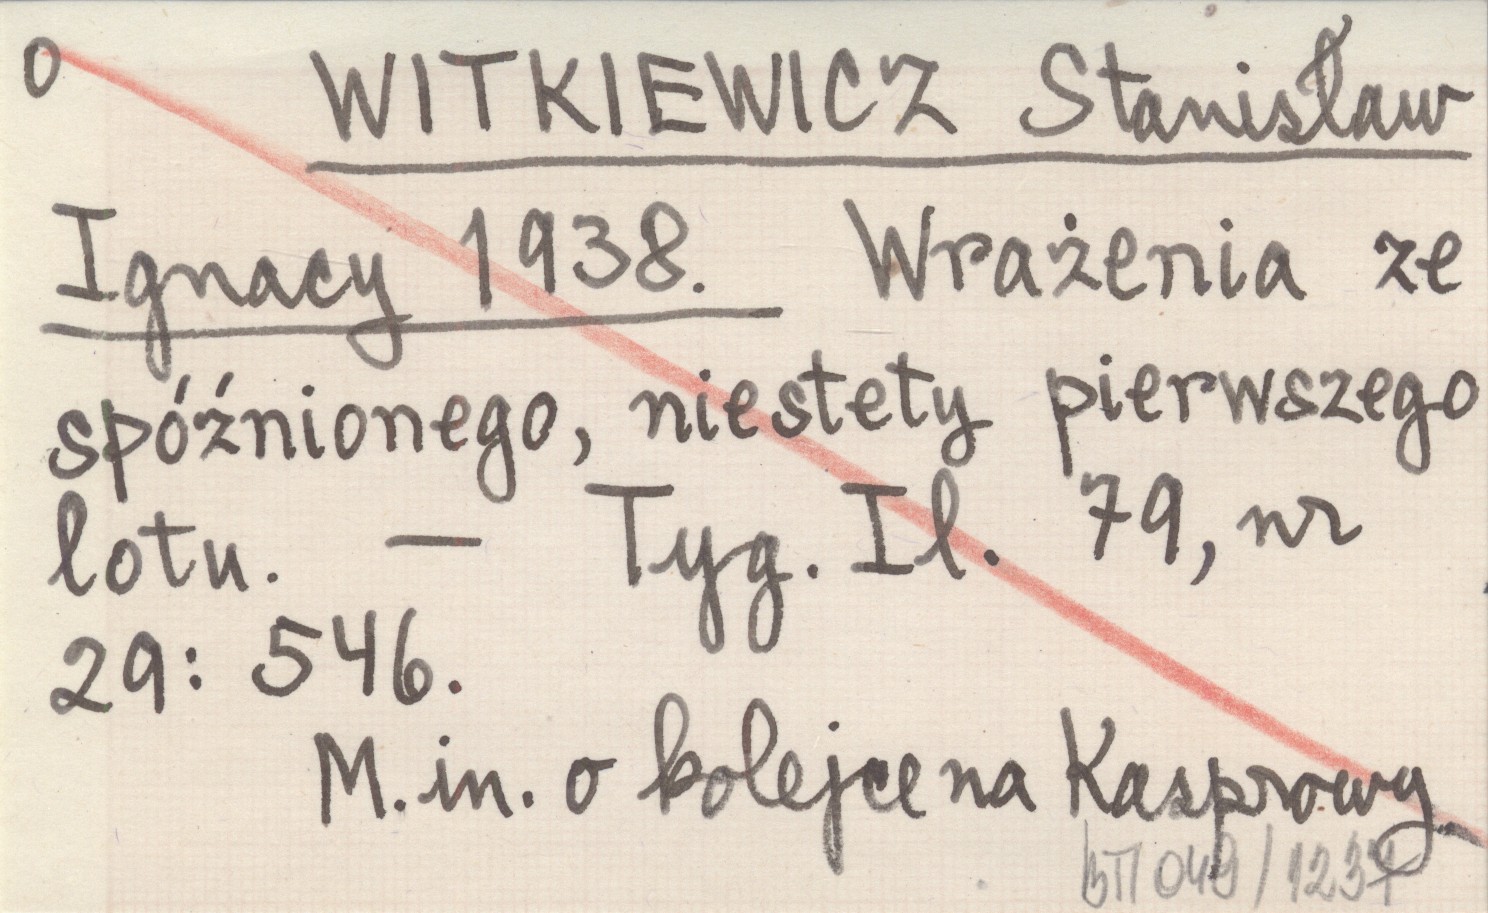 O WITKIEWICZ Stanisław
Ignacy 1938. Wrażenia ze
spóźnionego, niestety pierwszego
lotu. — Tyg. Il. 79, nr
29: 546.
M. in. o kolejce na Kasprowy
049/1237